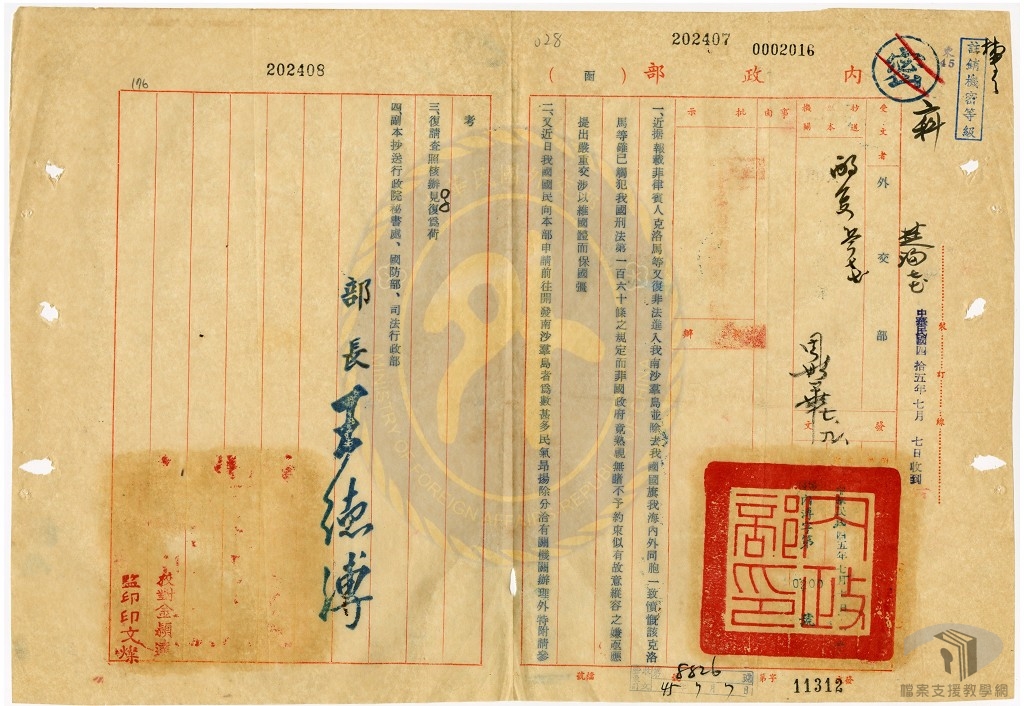 028
202407
0002016
202408
176
註銷機密等級
密
內政部（函）
受文者
外交部
抄送
副本
機關
事由
批示
擬辦
發文
裝訂線
中華民國四拾五年七月七日收到
一、近據報載菲律賓人克洛馬等又復非法進入我南沙羣島並除去我國國旗我海內外同胞一致憤慨該克洛
馬等雖已觸犯我國刑法第一百六十條之規定而菲國政府竟熟視無睹不予約束似有故意縱容之嫌亟應
提出嚴重交涉以維國體而保國疆
二、又近日我國國民向本部申請前往開發南沙羣島者為數甚多民氣昂揚除分洽有關機關辦理外特附請參
考
三、復請查照核辦見復為荷
四、副本抄送行政院祕書處、國防部、司法行政部
部長王德溥
內政部印
監印印文燦
8826
45 7 7
11312
檔案支援教學網